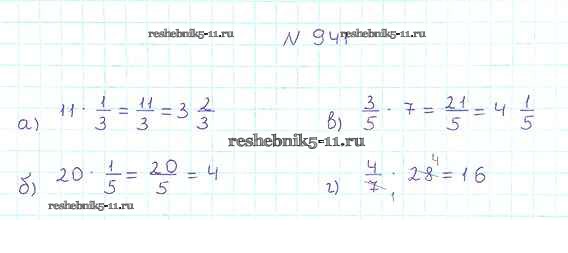 reshebnik5-11.ru reshebnik5-11.ru
N 947
а) 11 · 1/3 = 11/3 = 3 2/3
в) 3/5 · 7 = 21/5 = 4 1/5
reshebnik5-11.ru
б) 20 · 1/5 = 20/5 = 4
г) 4/7 1 · 28 4 = 16
reshebnik5-11.ru